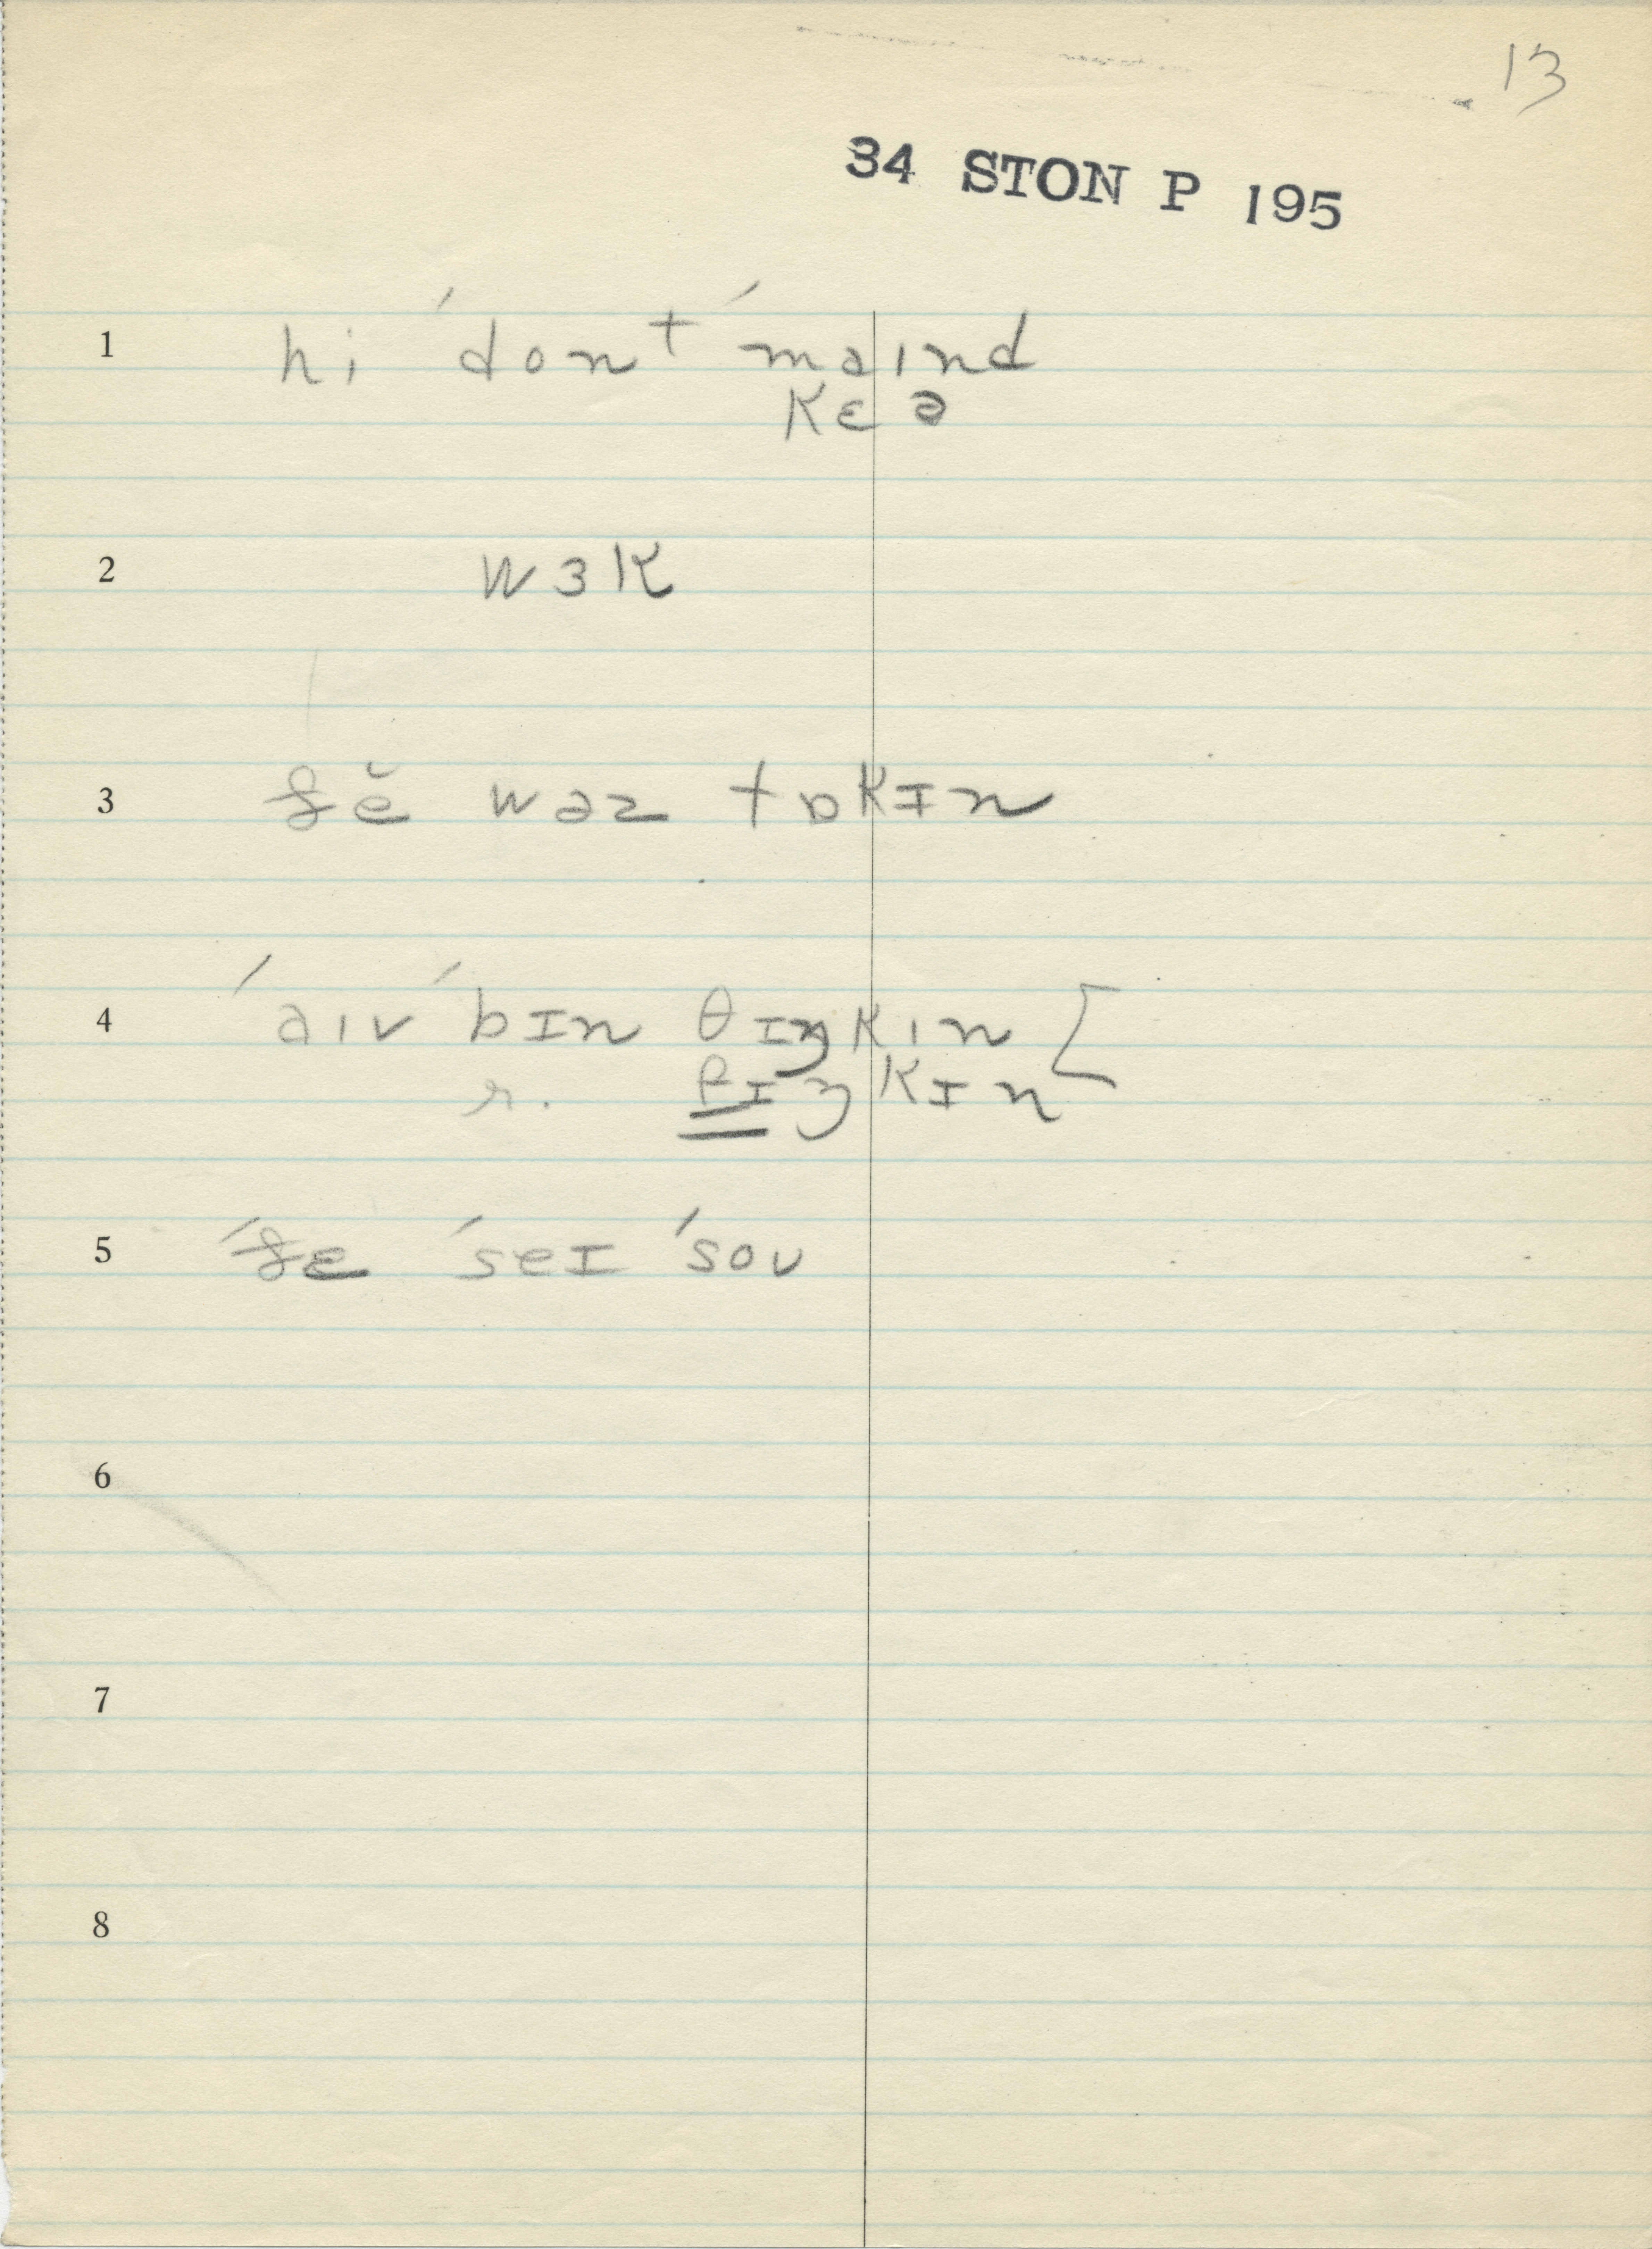 13
34 STON P 195
1 hi ˈdonᵗ ˈmaınd
kɛə
2 wɜk
3 ðĕ wəz tɒkɪn
4 ˈaıv ˈbɪn θɪŋkın [
r. fɪŋkɪn
5 ˈðɛ ˈseɪ ˈsoʊ
6
7
8